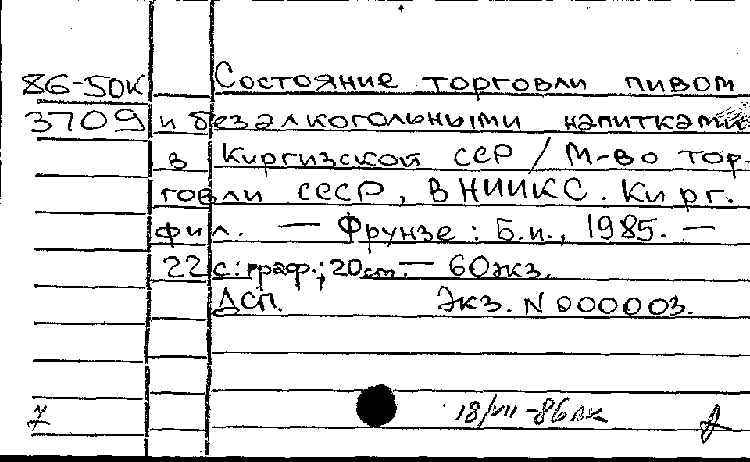 86-50К Состояние торговли пивом
3709 и безалкогольными напитками
в Киргизской ССР / М-во тор-
говли СССР, ВНИИКС. Кирг.
фил. — Фрунзе: Б.и., 1985. —
22 с.: граф.; 20 cm. — 60 экз.
ДСП. Экз. N 000003.
7 18/VII-86